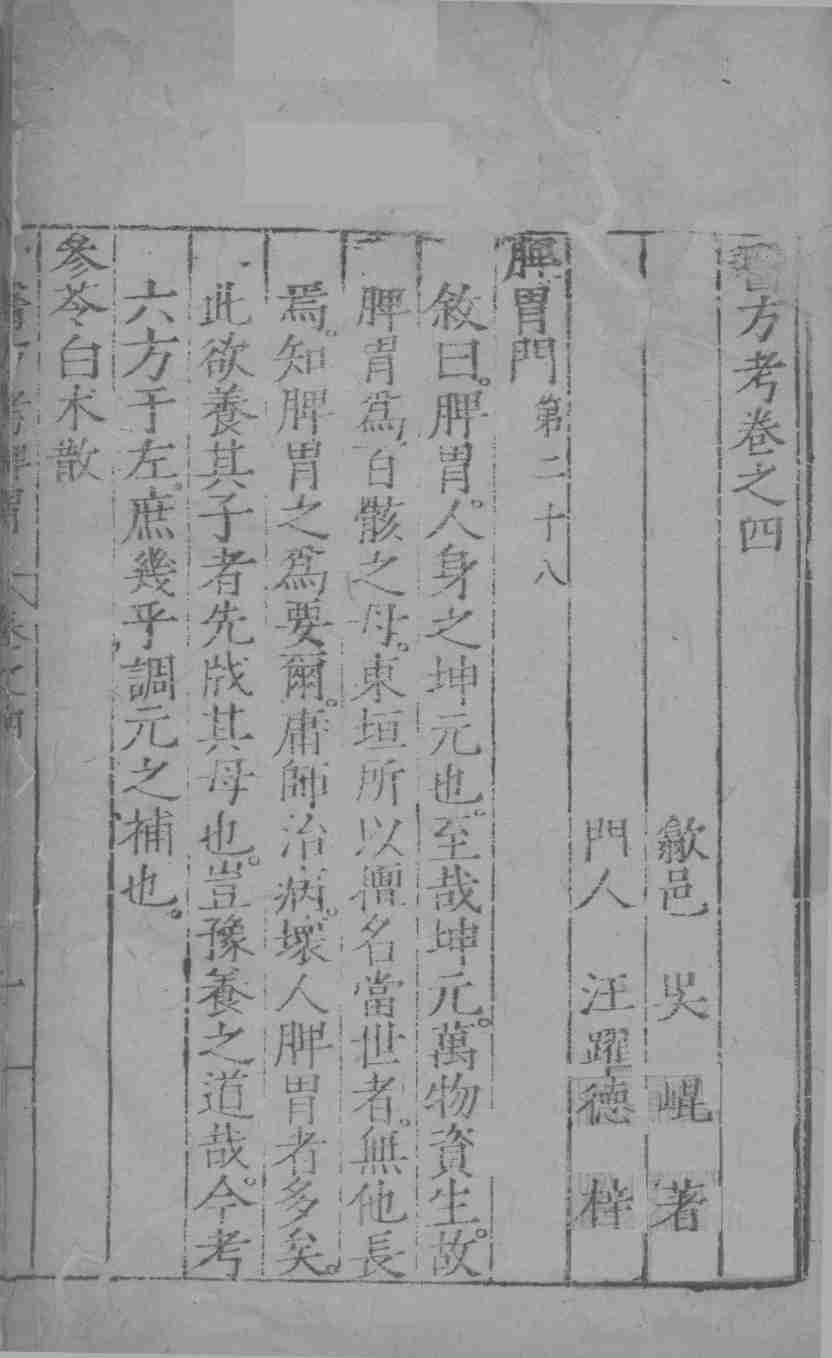 醫方考卷之四
歙邑 吴 崐 著
門人 汪躍德 梓
脾胃門 第二十八
敘曰。脾胃。人身之坤元也。至哉坤元。萬物資生。故
脾胃為百骸之母。東垣所以擅名當世者。無他長
焉。知脾胃之爲要爾。庸師治病。壞人脾胃者多矣。
此欲養其子者先戕其母也。豈豫養之道哉。今考
六方于左。庶幾乎調元之補也。
參苓白朮散
醫方考脾胃 卷之四